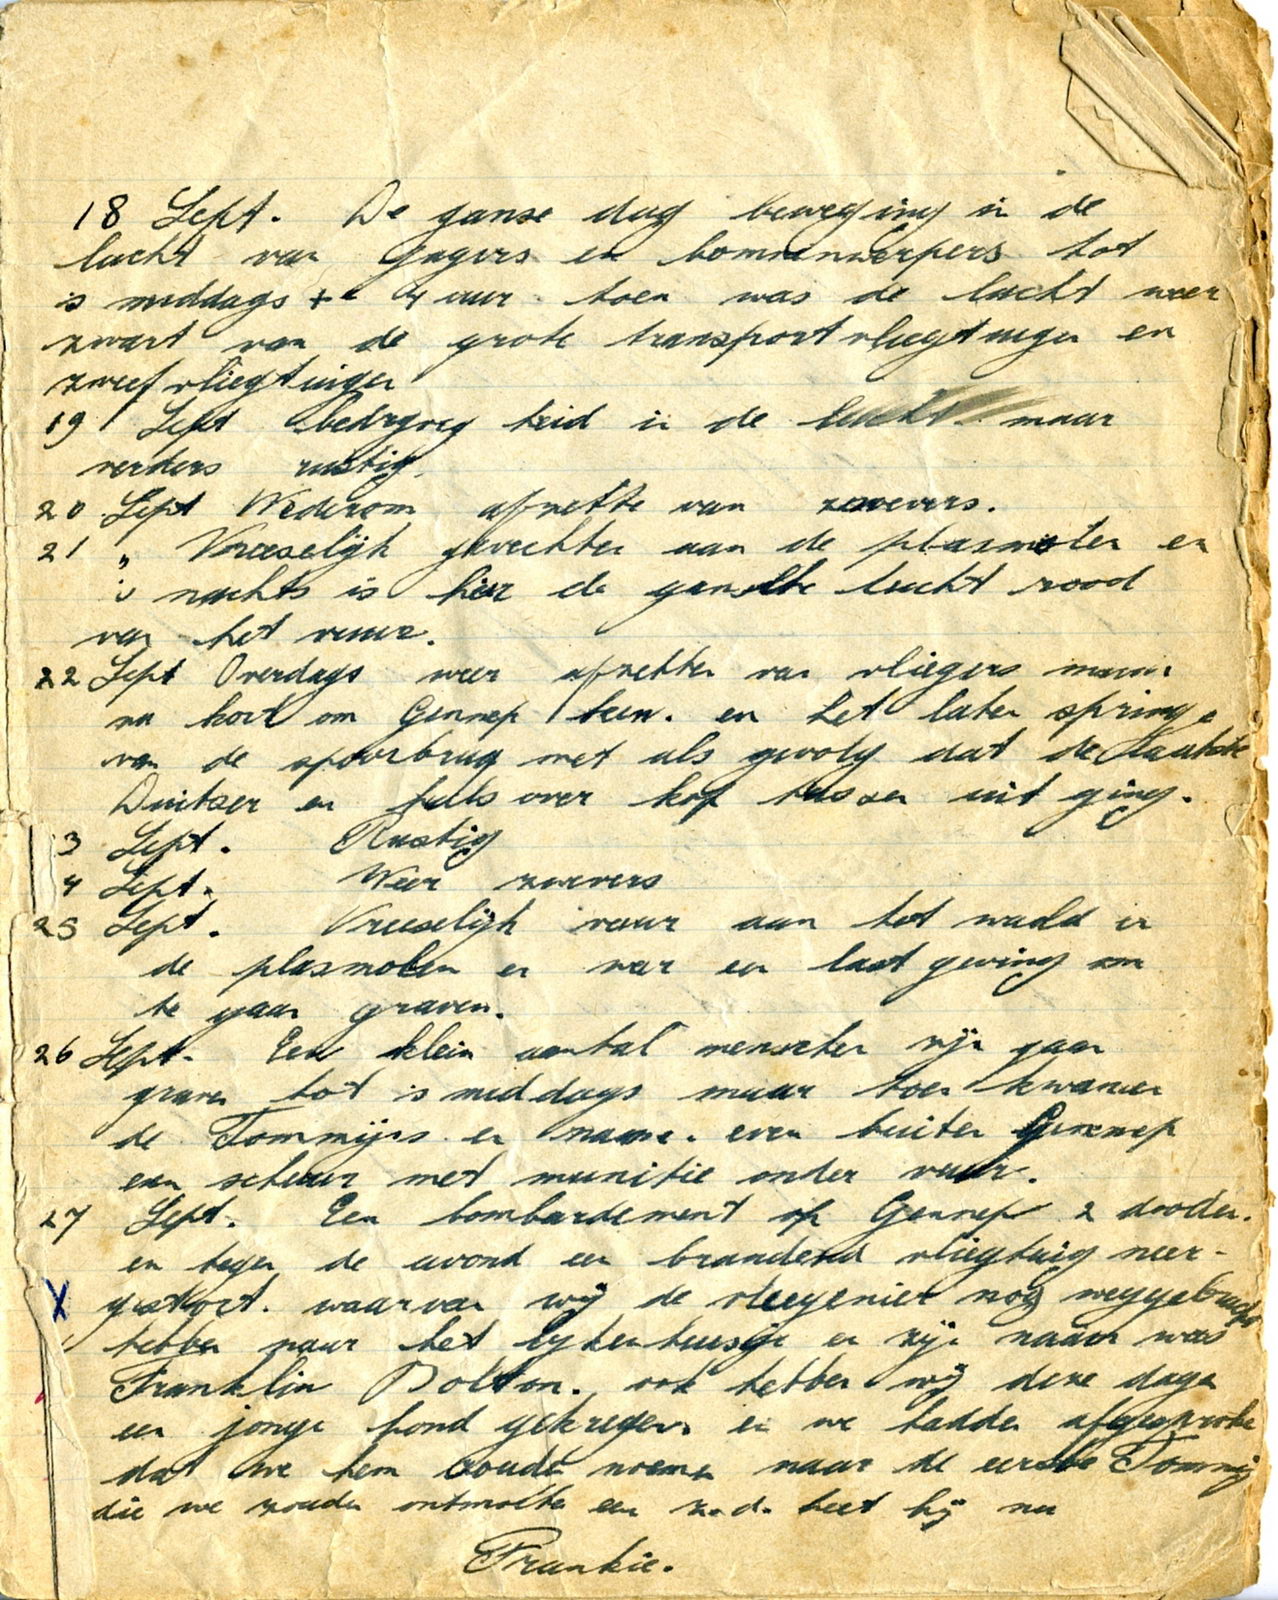 18 Sept. De ganse dag beweging in de
lucht van Jagers en bommenwerpers tot
's middags +- 4 uur. toen was de lucht weer
zwart van de grote transportvliegtuigen en
zweefvliegtuigen
19 Sept bedrijvigheid in de lucht maar
verders rustig.
20 Sept Wederom afzette van zwevers.
21 „ Vreeselijk gevechten aan de plasmolen en
's nachts is hier de gansche lucht rood
van het vuur.
22 Sept Overdags weer afzetten van vliegers
nu kort om Gennep heen. en het laten springe
van de spoorbrug met als gevolg dat de laatste
Duitser er hals over kop tussen uit ging.
3 Sept. Rustig
4 Sept. Weer zwevers
25 Sept. Vreeselijk vuur aan het wald en
de plasmolen en weer een last geving om
te gaan graven.
26 Sept. Een klein aantal menschen zijn gaan
graven tot 's middags maar toen kwamen
de Tommijs en namen even buiten Gennep
een schuur met munitie onder vuur.
27 Sept. Een bombardement op Gennep 2 dooden.
en tegen de avond een brandend vliegtuig neer-
X gestort. waarvan wij de vleegenier nog weggebracht
hebben naar het lijkenhuisje en zijn naam was
Franklin Bolton. ook hebben wij deze dagen
een jonge hond gekregen en we hadden afgesproke
dat we hem zoude noemen naar de eerste Tommij
die we zouden ontmoete en z.d. heet hij nu
Frankie.